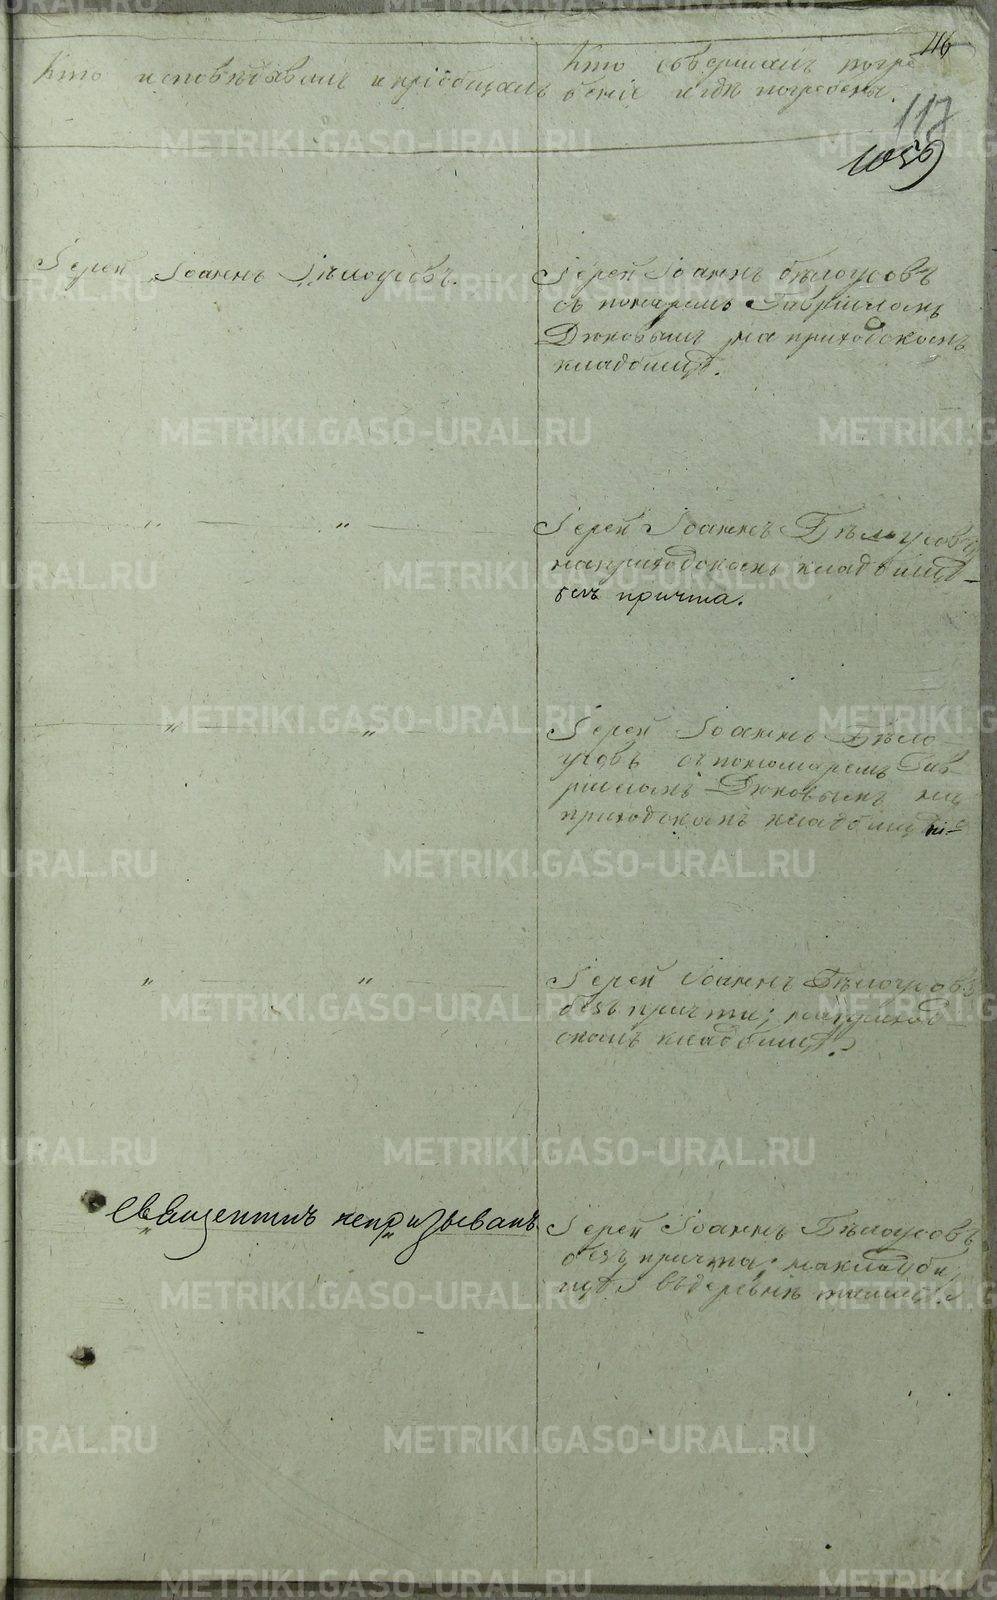 116
Кто исповѣдывалъ и пріобщалъ
Кто совершалъ погре
беніе и гдѣ погребены.
117
1059
Іерей Іоаннъ Бѣлоусовъ.
Іерей Іоаннъ Бѣлоусовъ
съ понамремъ Гавріиломъ
Дюковымъ на приходскомъ
кладбищѣ.
" "
Іерей Іоаннъ Бѣлоусовъ
на приходскомъ кладбищѣ
безъ причта.
" "
Іерей Іоаннъ Бѣло
усовъ съ пономаремъ Гав
ріиломъ Дюковымъ на
приходскомъ кладбищѣ
" "
Іерей Іоаннъ Бѣлоусовъ
безъ причта; на приход
скомъ кладбищѣ.
Священникъ непризыванъ
Іерей Іоаннъ Бѣлоусовъ
безъ причта; на кладби
щѣ въ деревнѣ
METRIKI.GASO-URAL.RU